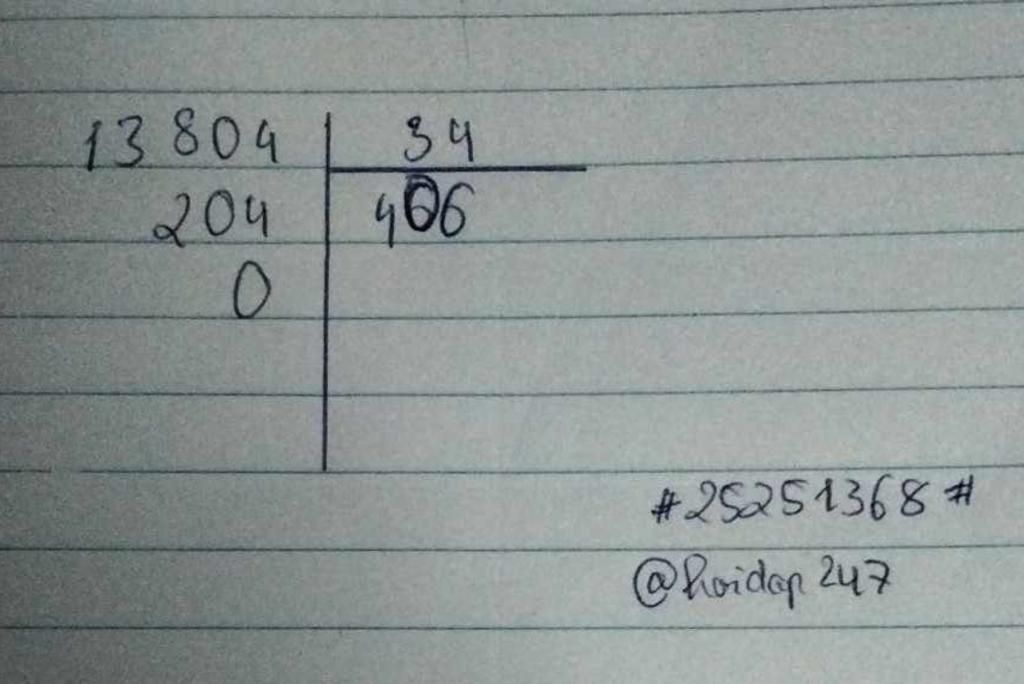 13804 34
204 406
0
#25251368#
@hoidap247